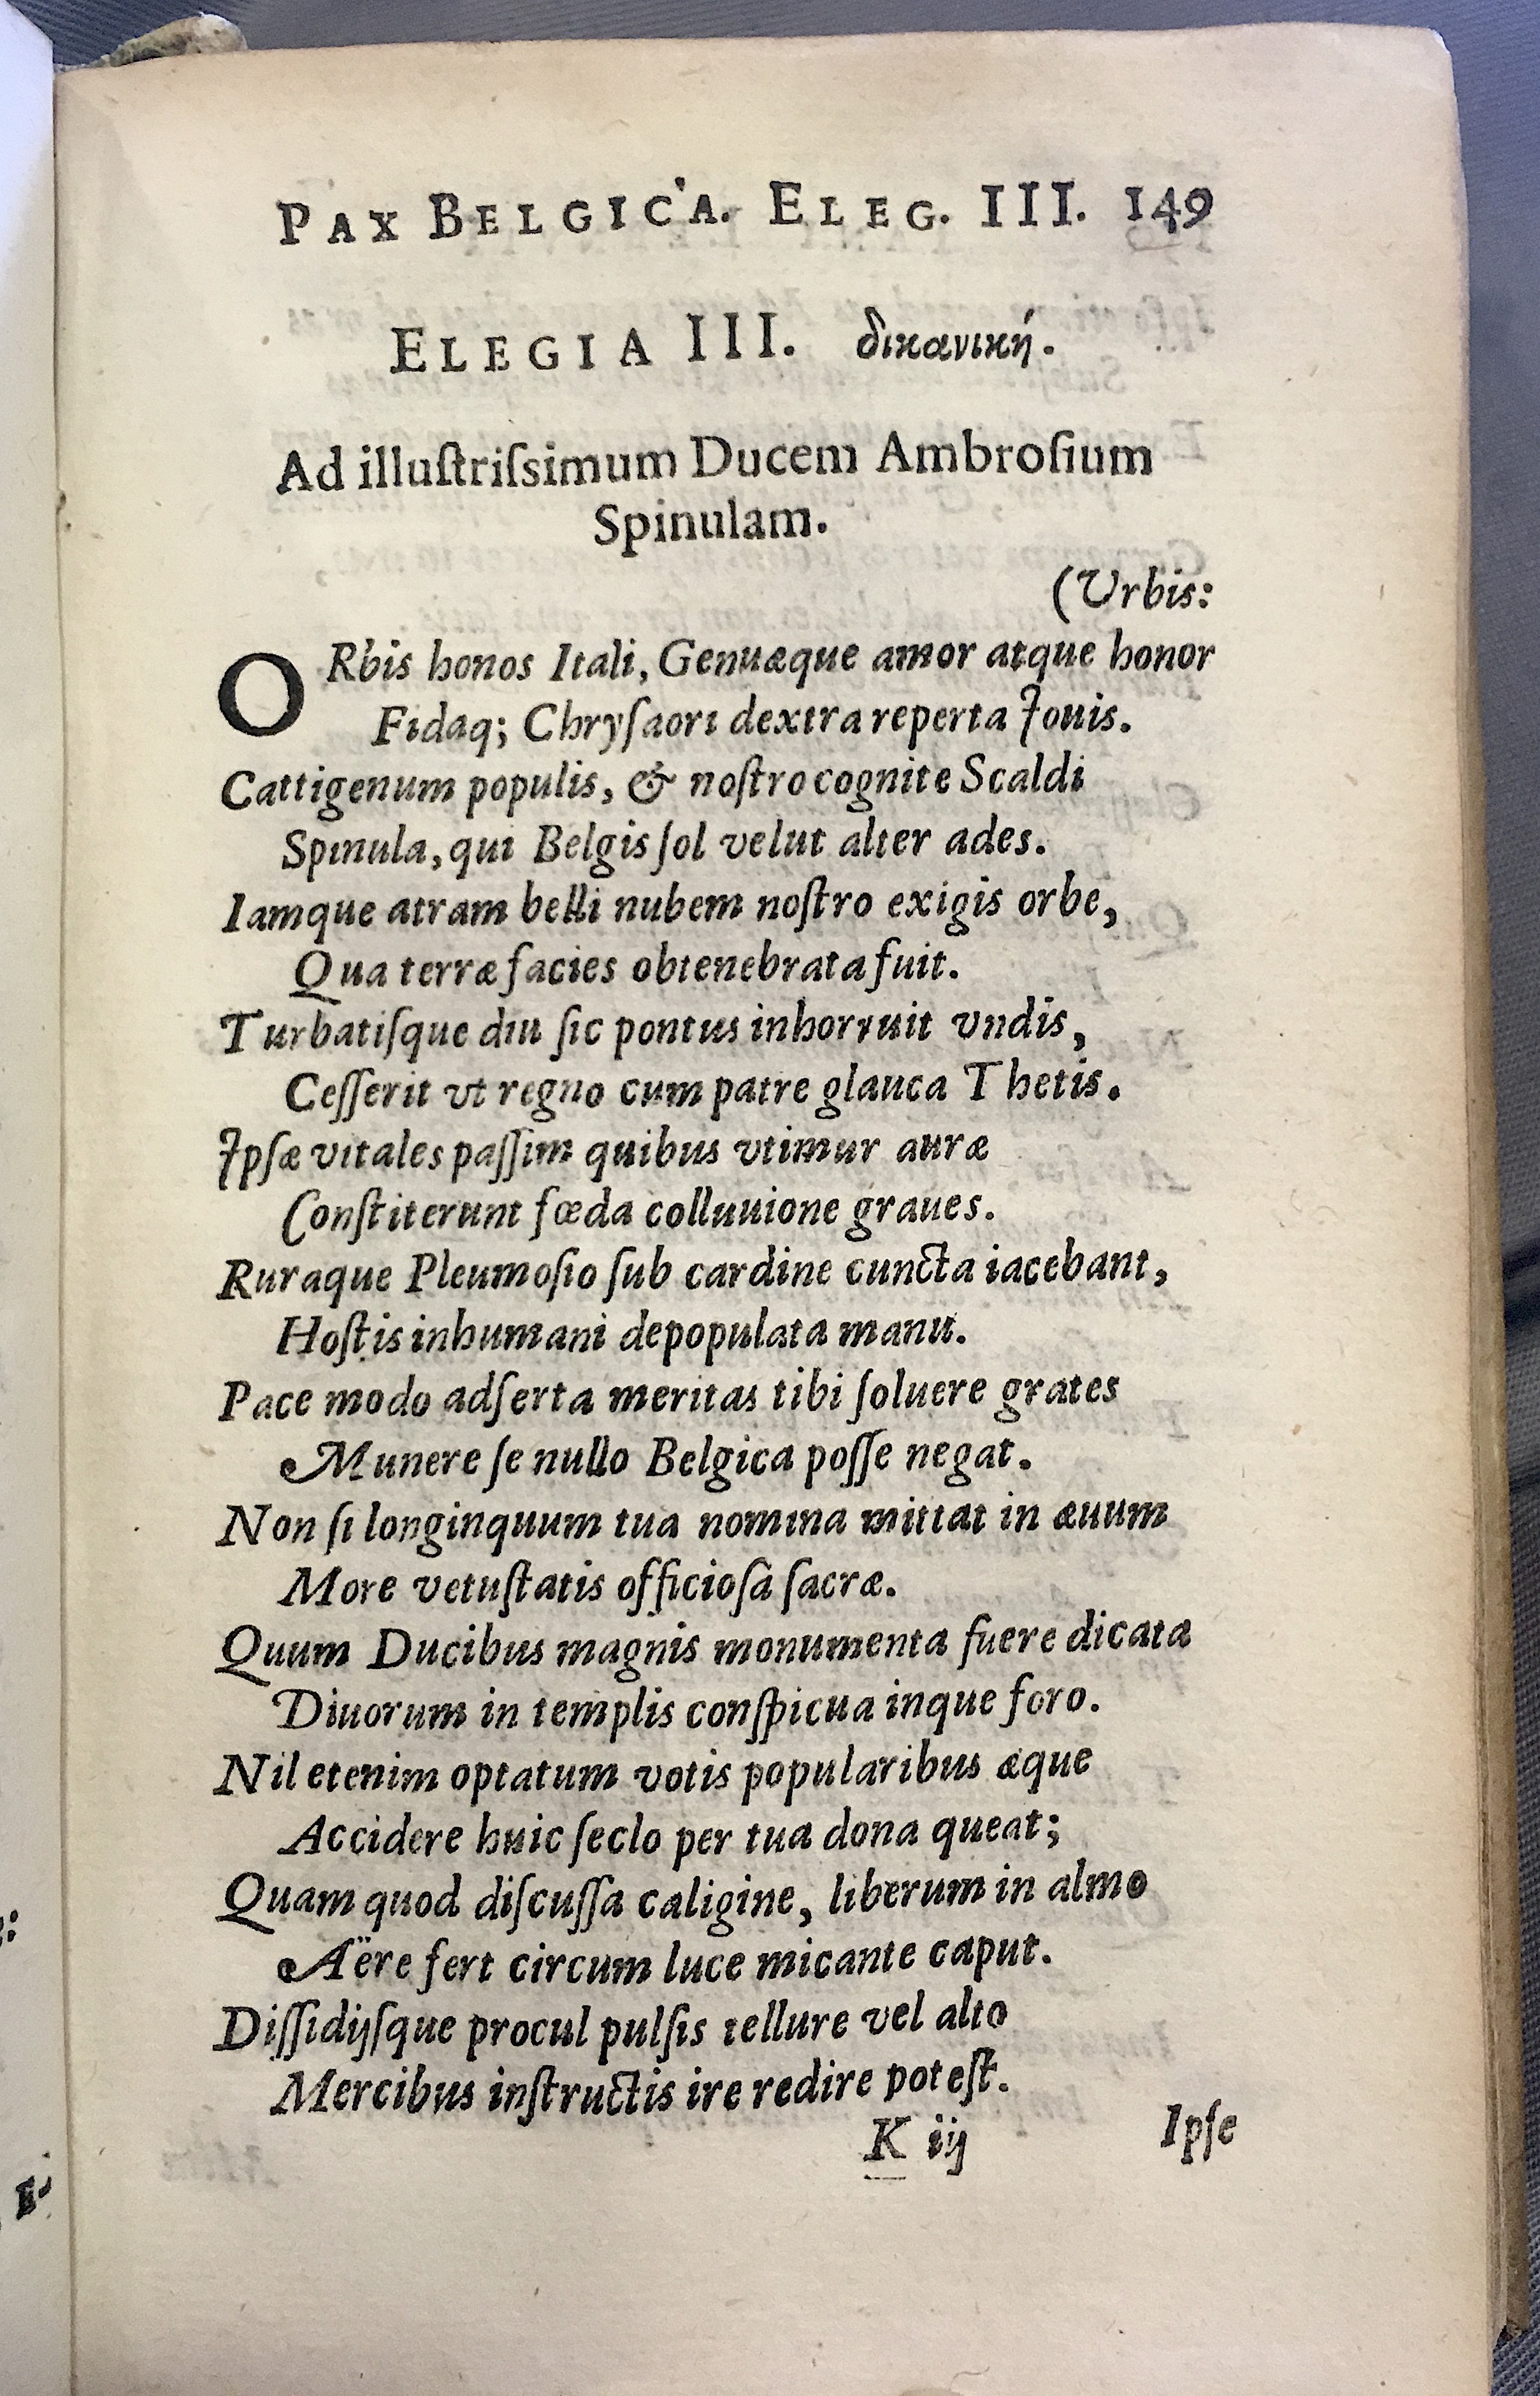 PAX BELGICA. ELEG. III. 149
ELEGIA III. δικανική.
Ad illuſtriſsimum Ducem Ambroſium
Spinulam.
(Vrbis:
ORbis honos Itali, Genuæque amor atque honor
Fidaq; Chryſaori dextra reperta Iouis.
Cattigenum populis, & noſtro cognite Scaldi
Spinula, qui Belgis ſol velut alter ades.
Iamque atram belli nubem noſtro exigis orbe,
Qua terræ facies obtenebrata fuit.
Turbatiſque diu ſic pontus inhorruit vndis,
Ceſſerit vt regno cum patre glauca Thetis.
Ipſæ vitales paſſim quibus vtimur auræ
Conſtiterunt fœda colluuione graues.
Ruraque Pleumoſio ſub cardine cuncta iacebant,
Hoſtis inhumani depopulata manu.
Pace modo adſerta meritas tibi ſoluere grates
Munere ſe nullo Belgica poſſe negat.
Non ſi longinquum tua nomina mittat in æuum
More vetuſtatis officioſa ſacræ.
Quum Ducibus magnis monumenta fuere dicata
Diuorum in templis conſpicua inque foro.
Nil etenim optatum votis popularibus æque
Accidere huic ſeclo per tua dona queat;
Quam quod diſcuſſa caligine, liberum in almo
Aëre fert circum luce micante caput.
Diſſidijſque procul pulſis tellure vel alto
Mercibus inſtructis ire redire poteſt.
K iij
Ipſe